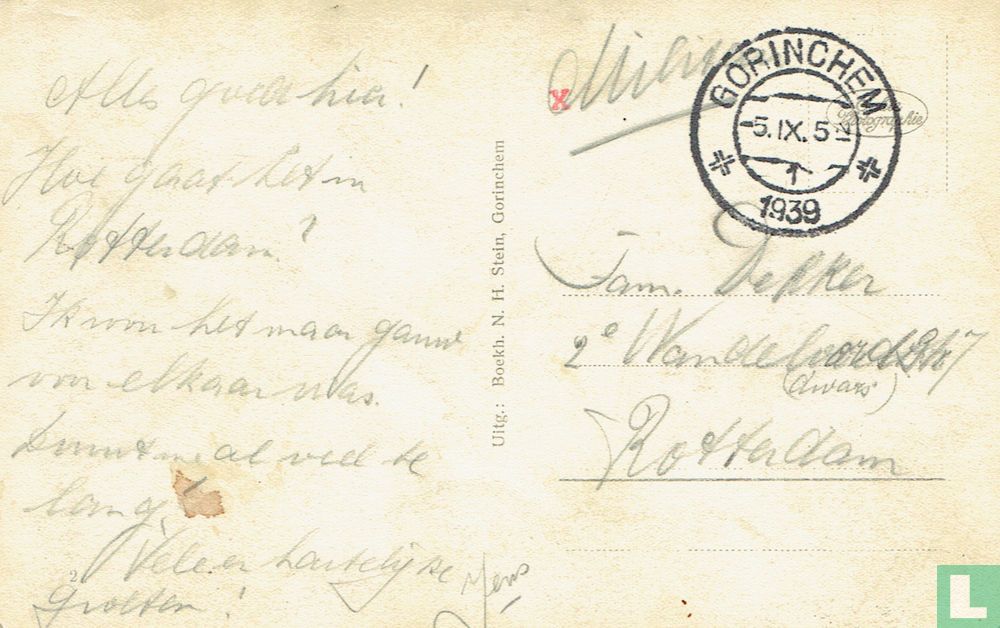 Alles goed hier!
Hoe gaat het in
Rotterdam?
Ik wou het maar gauw
voor elkaar was.
Duurt me al veel te
lang!
Vele en hartelijke
groeten!
Uitg.: Boekh. N. H. Stein, Gorinchem
x
GORINCHEM
5.IX.5
1939
Photographie
Fam. Dekker
2e
(dwars)
Rotterdam
L